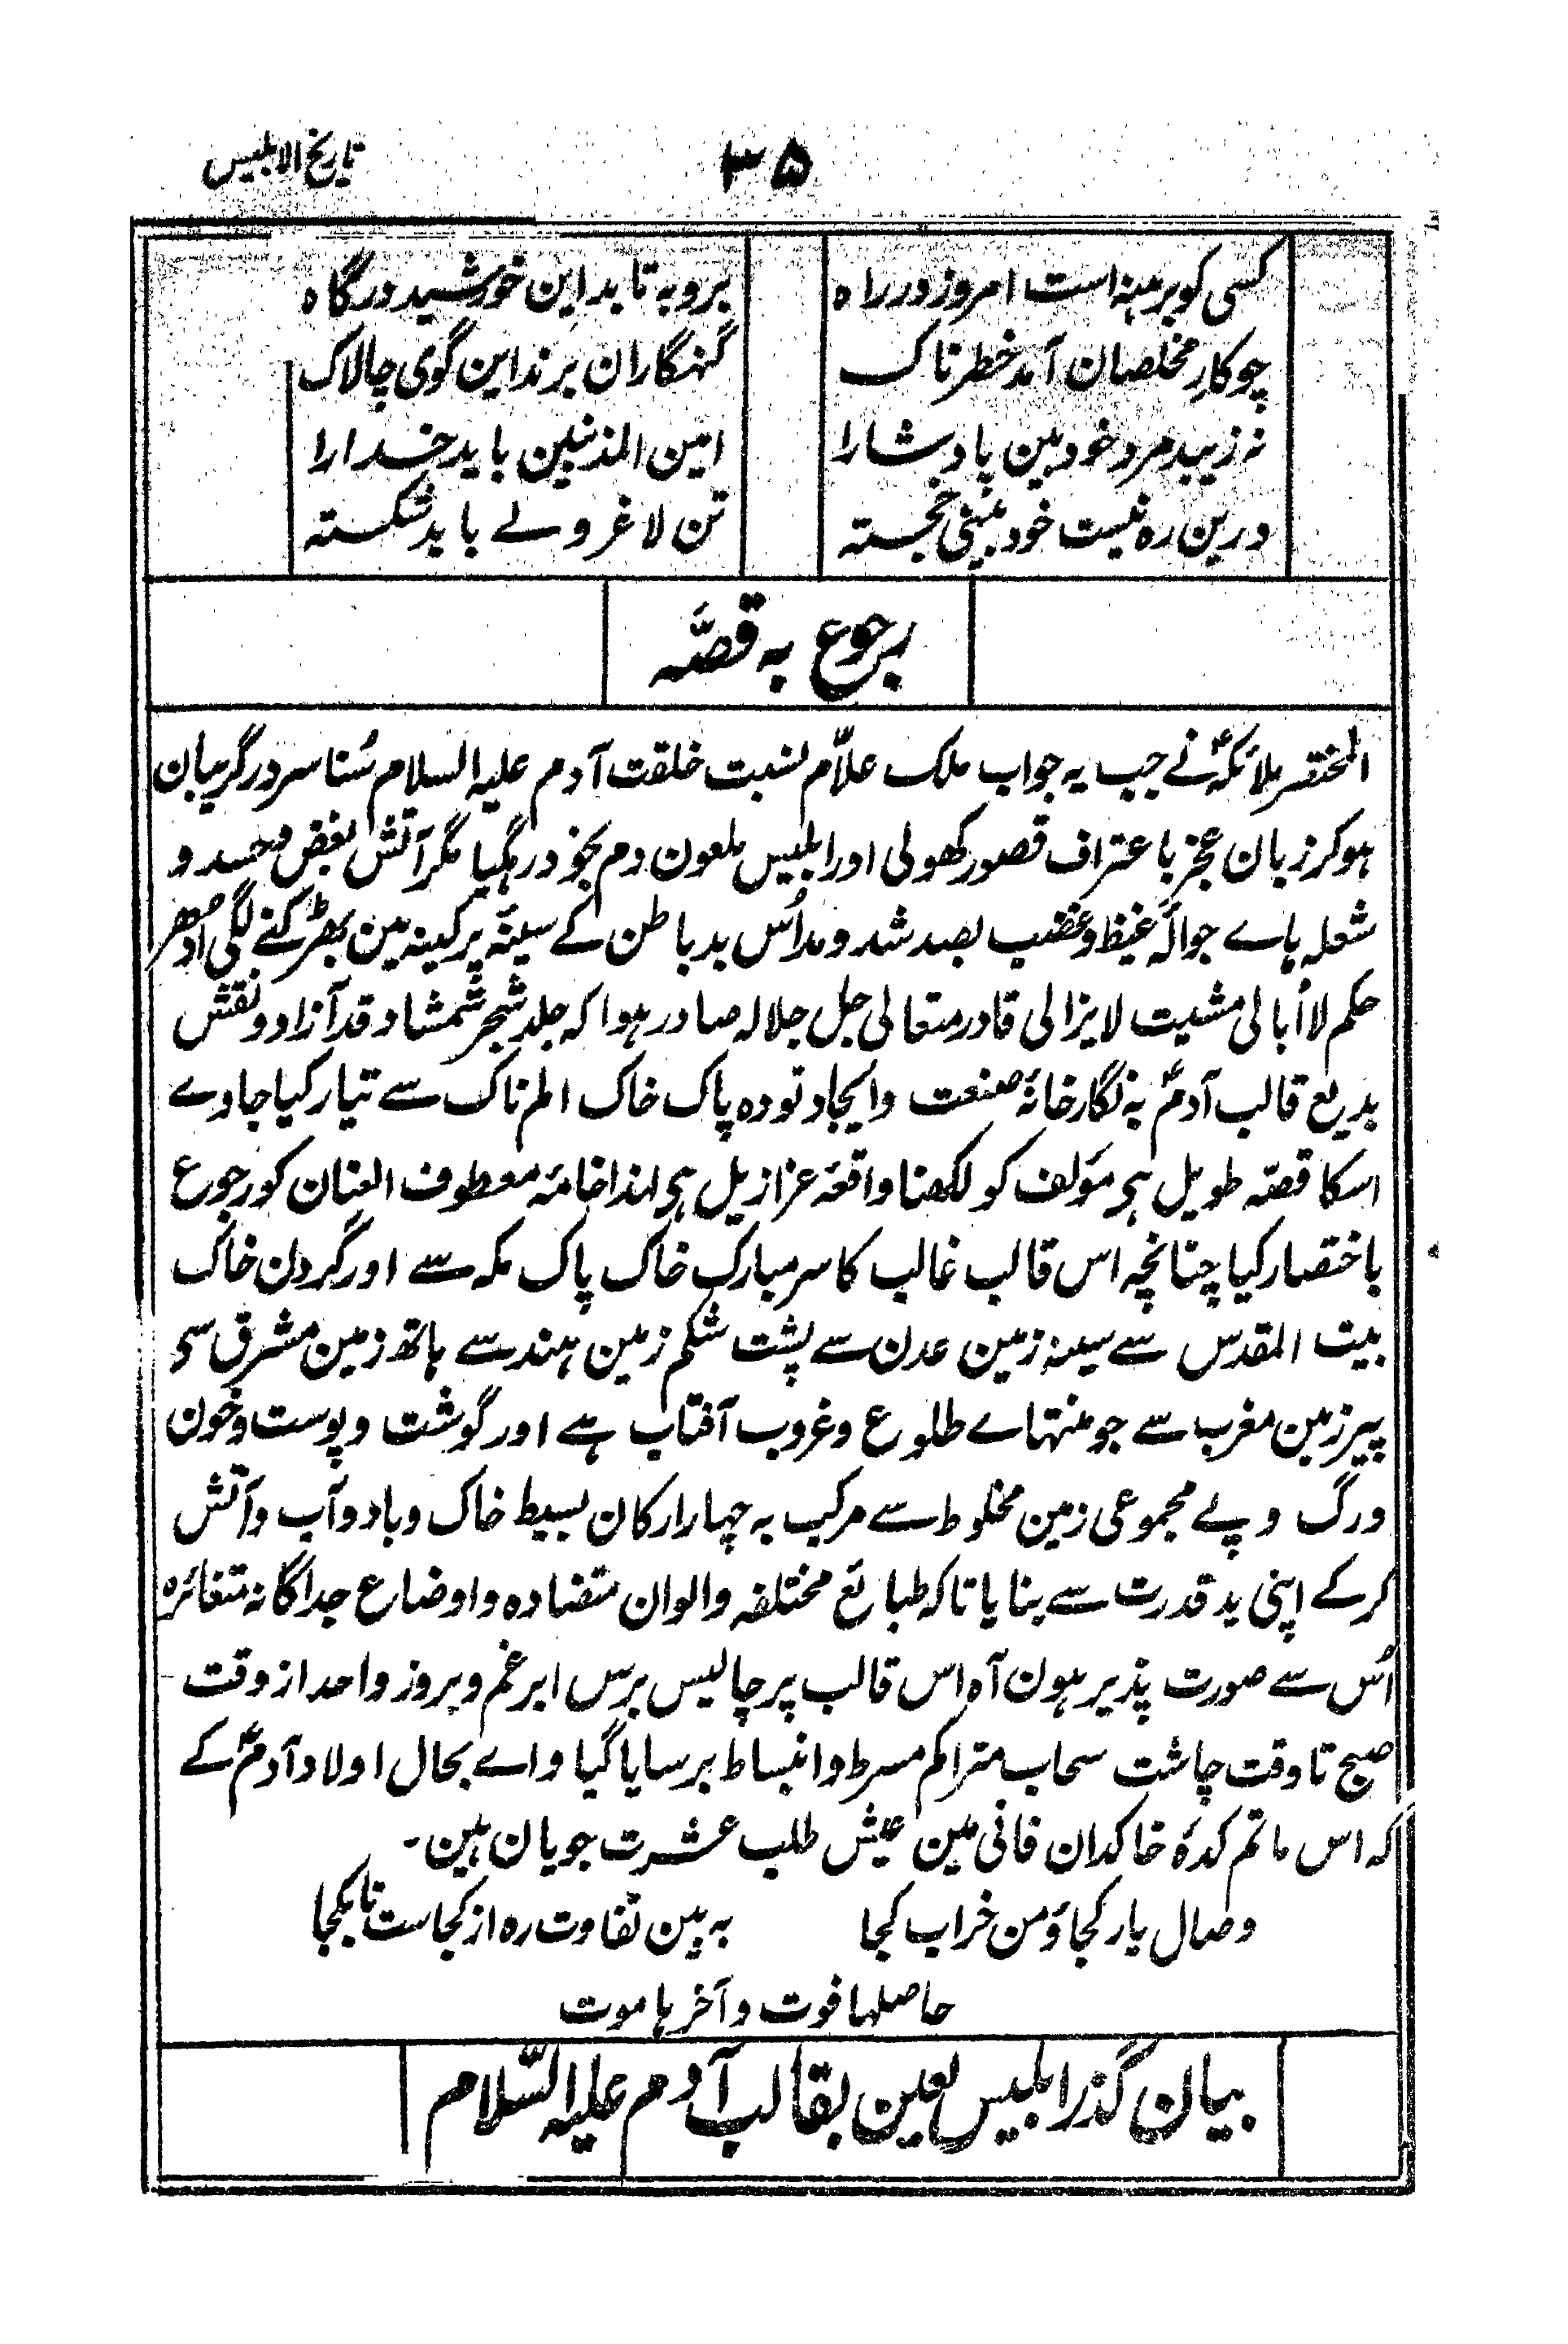 تاریخ الابلیس
۳۵
کسی کو برہنہ است امروز در راہ
بروبہ تابد این خورشید درگاہ
چو کارِ مخلصان آمد خطرناک
گنہگاران برند این گوی چالاک
نہ زیبد مرد خود بین پادشا را
امین المذنبین باید خدا را
درین رہ نیست خود بینی خجستہ
تن لاغر و لے باید شکستہ
رجوع بہ قصّہ
المختصر ملائکہؑ نے جب یہ جواب ملک علاّم نسبت خلقت آدم علیہ السلام سُنا سر در گریبان
ہوکر زبان عجز باعتراف قصور کھولی اور ابلیس ملعون دم بخود رہگیا مگر آتش بغض و حسد و
شعلہ ہاے جوالۂ غیظ و غضب بصد شد و مد اُس بد باطن کے سینۂ پر کینہ مین بھڑکنے لگی اُدھر
حکم لا اُبالی مشیت لایزالی قادر متعالی جل جلالہ صادر ہوا کہ جلد شجر شمشاد قد آزاد و نقش
بدیع قالب آدمؑ بہ نگارخانۂ صنعت وایجاد تودہ پاک خاک المناک سے تیار کیا جاوے
اسکا قصّہ طویل ہی مؤلف کو لکھنا واقعۂ عزازیل ہی لہذا خامۂ معطوف العنان کو رجوع
باختصار کیا چنانچہ اس قالب غالب کا سر مبارک خاک پاک مکہ سے اور گردن خاک
بیت المقدس سے سینہ زمین عدن سے پشت شکم زمین ہند سے ہاتھ زمین مشرق سی
پیر زمین مغرب سے جو منتہاے طلوع و غروب آفتاب ہے اور گوشت و پوست و خون
ورگ و پے مجموعی زمین مخلوط سے مرکب بہ چہار ارکان بسیط خاک و باد و آب و آتش
کرکے اپنی ید قدرت سے بنایا تاکہ طبائع مختلفہ والوان متضادہ و اوضاع جداگانہ متغائرہ
اُس سے صورت پذیر ہون آہ اس قالب پر چالیس برس ابر غم و بروز واحد از وقت
صبح تا وقت چاشت سحاب متراکم مسرط و انبساط برسایا گیا واے بحال اولاد آدمؑ کے
کہ اس ماتم کدۂ خاکدان فانی مین عیش طلب عشرت جویان ہین۔
وصال یار کجا و من خراب کجا
بہ بین تفاوت رہ از کجاست تا بکجا
حاصلہا فوت و آخرہا موت
بیان گذر ابلیس لعین بقالب آدم علیہ السّلام